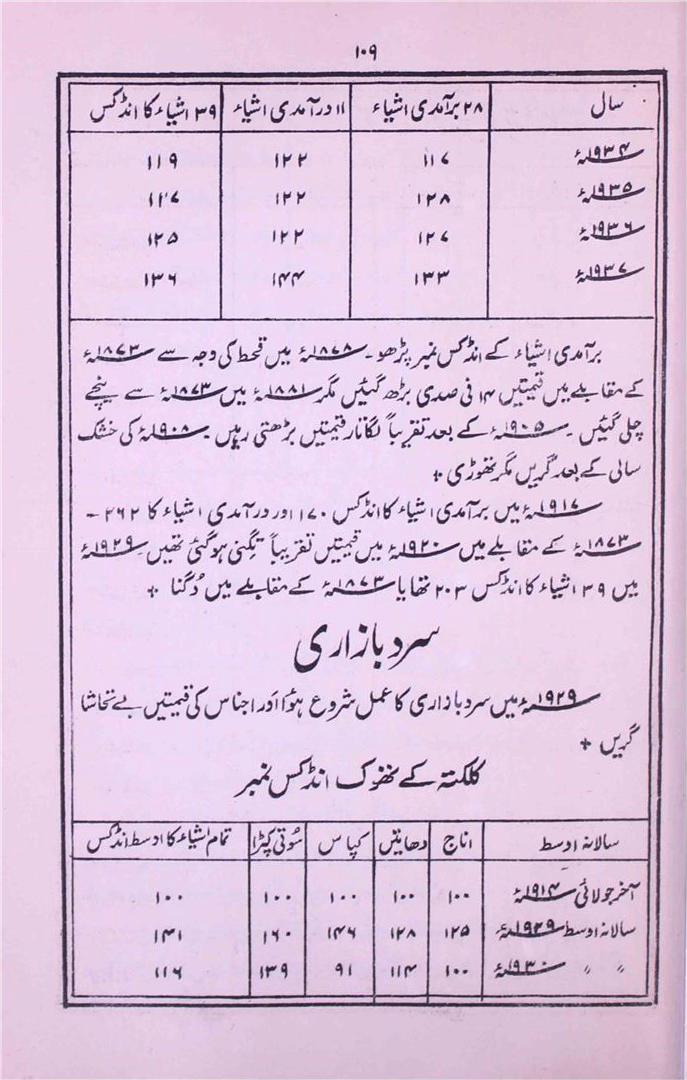 ۱۰۹
سال ۲۸ برآمدی اشیاء ۱۱ درآمدی اشیاء ۳۹ اشیاء کا انڈکس
۱۹۳۴ء ۱۱۷ ۱۲۲ ۱۱۹
۱۹۳۵ء ۱۲۸ ۱۲۲ ۱۲۷
۱۹۳۶ء ۱۲۷ ۱۲۲ ۱۲۵
۱۹۳۷ء ۱۳۳ ۱۴۴ ۱۳۶
برآمدی اشیاء کے انڈکس نمبر پڑھو۔ ۱۸۷۸ء میں قحط کی وجہ سے ۱۸۷۳ء
کے مقابلے میں قیمتیں ۱۴ فی صدی بڑھ گئیں مگر ۱۸۸۱ء میں ۱۸۷۳ء سے نیچے
چلی گئیں۔ ۱۹۰۵ء کے بعد تقریباً لگاتار قیمتیں بڑھتی رہیں۔ ۱۹۰۸ء کی خشک
سالی کے بعد گریں مگر تھوڑی +
۱۹۱۷ء میں برآمدی اشیاء کا انڈکس ۱۷۰ اور درآمدی اشیاء کا ۲۶۲ -
۱۸۷۳ء کے مقابلے میں ۱۹۲۰ء میں قیمتیں تقریباً تگنی ہو گئی تھیں۔ ۱۹۲۹ء
میں ۳۹ اشیاء کا انڈکس ۲۰۳ تھا یا ۱۸۷۳ء کے مقابلے میں دُگنا +
سرد بازاری
۱۹۲۹ء میں سرد بازاری کا عمل شروع ہوٴا اَور اجناس کی قیمتیں بے تحاشا
گریں +
کلکتہ کے تھوک انڈکس نمبر
سالانہ اوسط اناج دھاتیں کپاس سُوتی کپڑا تمام اشیاء کا اوسط انڈکس
آخر جولائی ۱۹۱۴ء ۱۰۰ ۱۰۰ ۱۰۰ ۱۰۰ ۱۰۰
سالانہ اوسط ۱۹۲۹ء ۱۲۵ ۱۲۸ ۱۴۶ ۱۶۰ ۱۴۱
〃 〃 ۱۹۳۰ء ۱۰۰ ۱۱۴ ۹۱ ۱۳۹ ۱۱۶